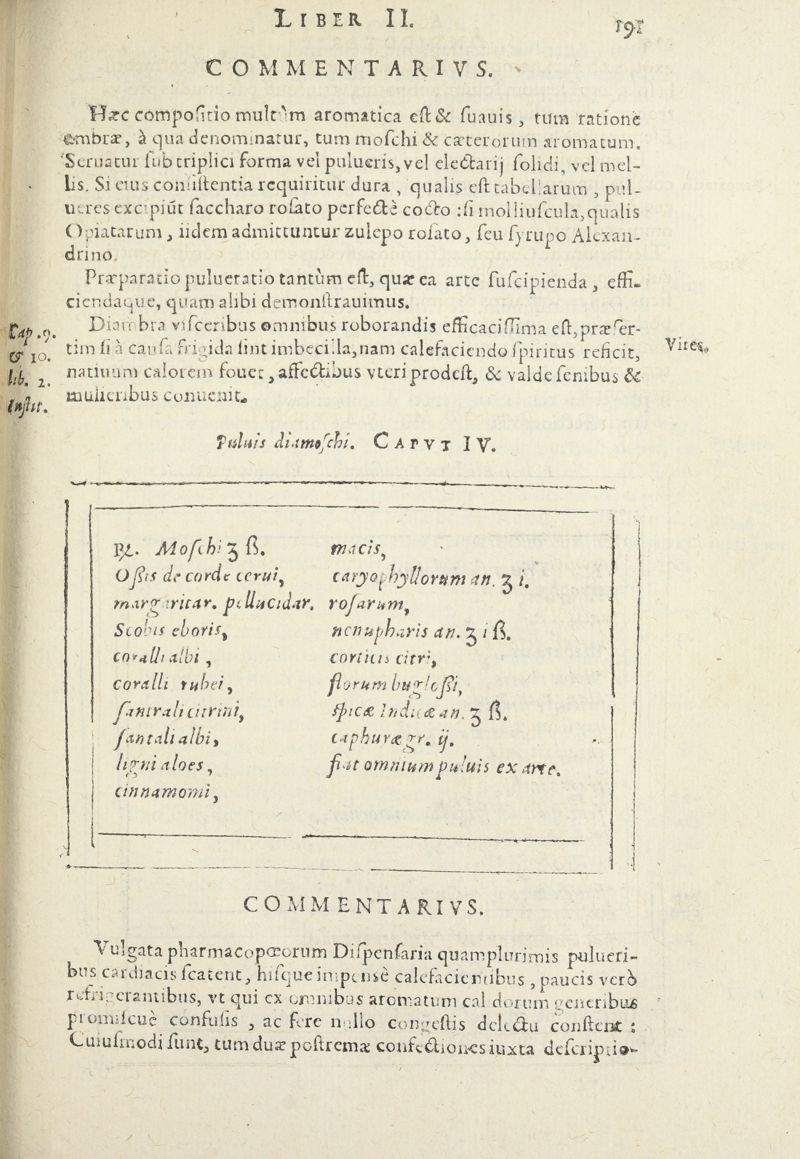 LIBER II. 191
COMMENTARIVS.
Hæc compoſitio multùm aromatica eſt & ſuauis, tum ratione
ambræ, à qua denominatur, tum moſchi & cæterorum aromatum.
Seruatur ſub triplici forma vel pulueris, vel electarij ſolidi, vel mel-
lis. Si eius conſiſtentia requiritur dura, qualis eſt tabellarum, pul-
ueres excipiūt ſaccharo roſato perfectè cocto : ſi molliuſcula, qualis
Opiatarum, iidem admittuntur zulepo roſato, ſeu ſyrupo Alexan-
drino.
Præparatio pulueratio tantùm eſt, quæ ea arte ſuſcipienda, effi-
ciendaque, quam alibi demonſtrauimus.
Cap. 9.
& 10.
lib. 2.
Inſtit.
Diambra viſceribus omnibus roborandis efficaciſſima eſt, præſer-
tim ſi à cauſa frigida ſint imbecilla, nam calefaciendo ſpiritus reficit,
Vires.
natiuum calorem fouet, affectibus vteri prodeſt, & valde ſenibus &
mulieribus conuenit.
Puluis diamoſchi. CAPVT IV.
℞. Moſchi ʒ ß.
Oſſis de corde cerui,
margaritar. pellucidar.
Scobis eboris,
coralli albi,
coralli rubei,
ſantali citrini,
ſantali albi,
ligni aloes,
cinnamomi,
macis,
caryophyllorum an. ʒ i.
roſarum,
nenupharis an. ʒ i ß.
corticis citri,
florum bugloſſi,
ſpicæ Indicæ an. ʒ ß.
caphuræ gr. ij.
fiat omnium puluis ex arte.
COMMENTARIVS.
Vulgata pharmacopœorum Diſpenſaria quamplurimis pulueri-
bus cardiacis ſcatent, hiſque impensè calefacientibus, paucis verò
refrigerantibus, vt qui ex omnibus aromatum calidorum generibus
promiſcuè confuſis, ac fere nullo congeſtis delectu conſtent :
Cuiuſmodi ſunt, tum duæ poſtremæ confectiones iuxta deſcriptio-